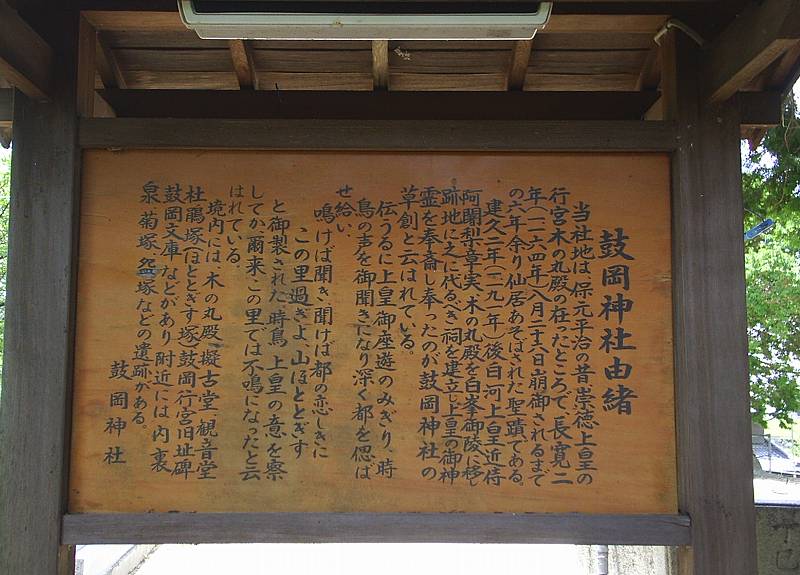 鼓岡神社由緒
当社地は、保元平治の昔崇徳上皇の
行宮木の丸殿の在ったところで、長寛二
年(一一六四年)八月二十六日崩御されるまで
の六年余り仙居あそばされた聖蹟である。
建久二年(一一九一年)後白河上皇近侍
阿闍梨章実、木の丸殿を白峯御陵に移し
跡地に之に代るべき祠を建立し、上皇の御神
霊を奉斎し奉ったのが鼓岡神社の
草創と云はれている。
伝うるに上皇御座遊のみぎり、時
鳥の声を御聞きになり深く都を偲ば
せ給い、
鳴けば聞き聞けば都の恋しきに
この里過ぎよ、山ほととぎす
と御製された時鳥、上皇の意を察
してか爾来この里では不鳴になったと云
はれている。
境内には、木の丸殿、擬古堂、観音堂
杜鵑塚(ほととぎす塚)鼓岡行宮旧址碑
鼓岡文庫などがあり附近には、内裏
泉、菊塚、盌塚などの遺跡がある。
鼓岡神社